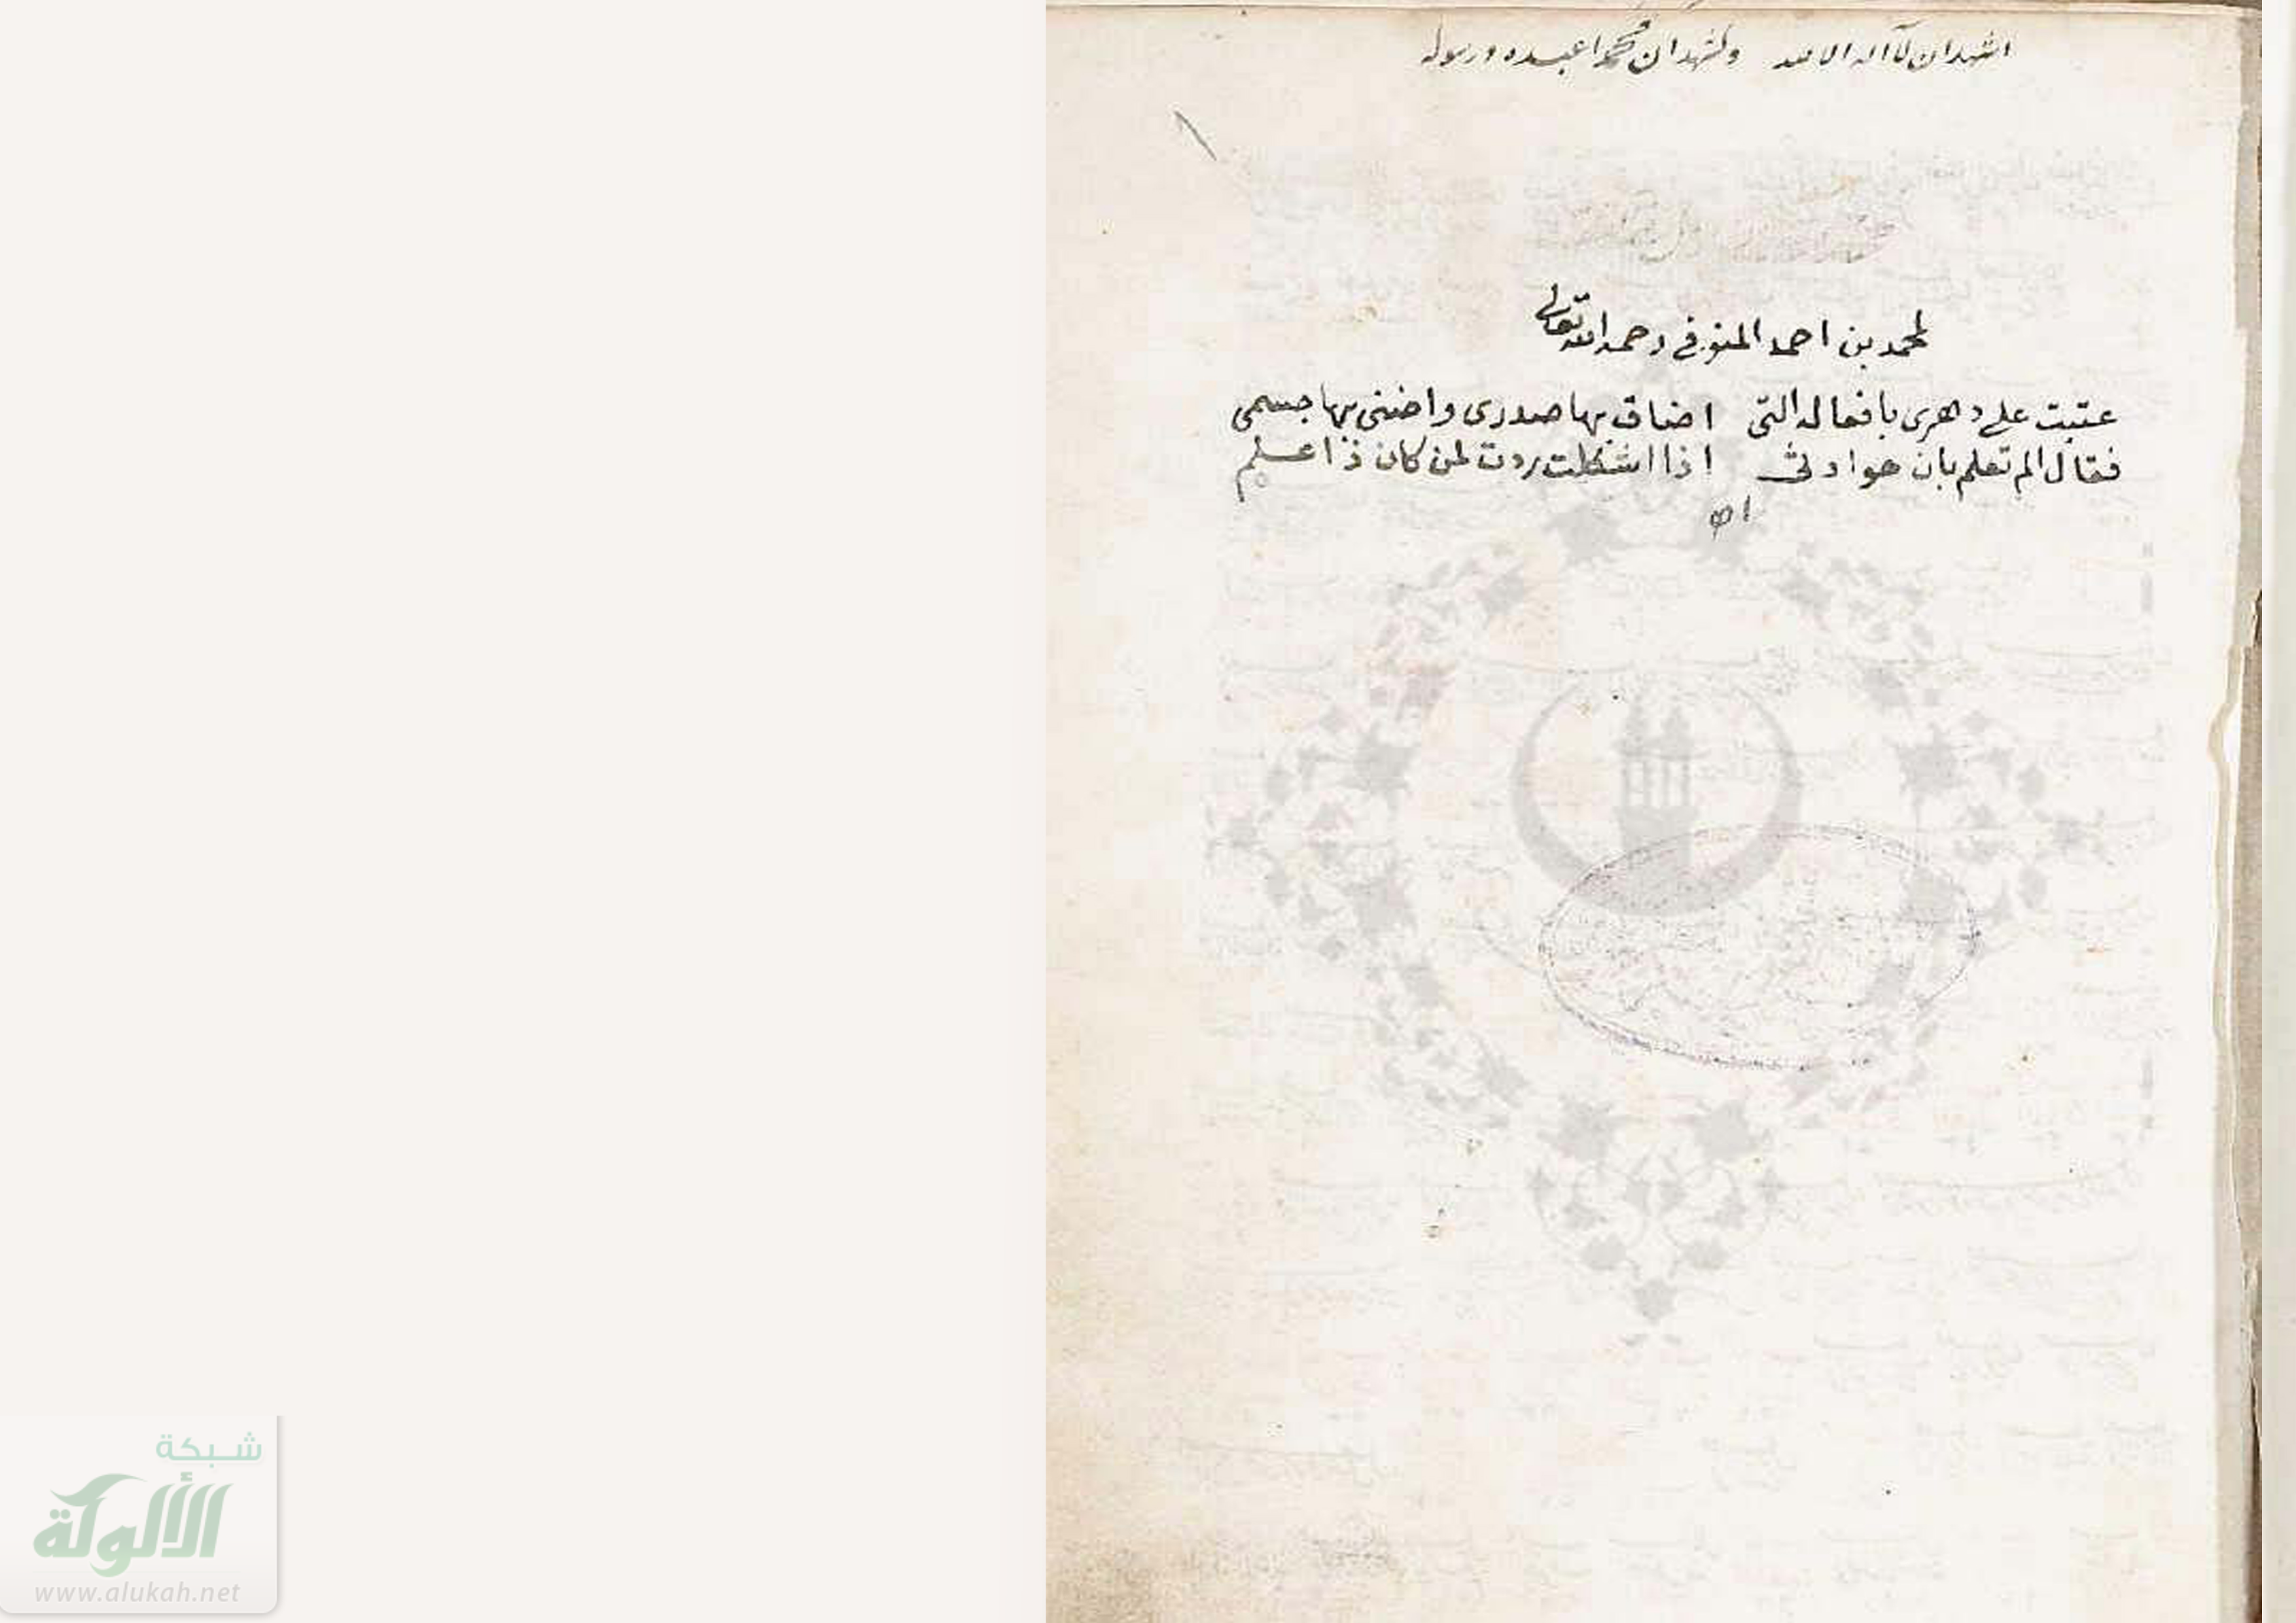 اشهد ان لا اله الا الله واشهد ان محمدا عبده ورسوله
لمحمد بن احمد المنوفي رحمه الله تعالى
عتبت على دهرى بافعاله التى اضاق بها صدرى واضنى بها جسمى
فقال الم تعلم بان حوادثى اذا اشكلت ردت لمن كان ذا علم
اه
شبكة
الألوكة
www.alukah.net